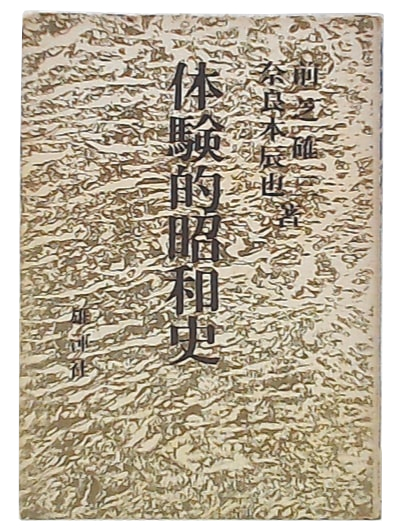 前芝確三
奈良本辰也 著
体験的昭和史
雄渾社